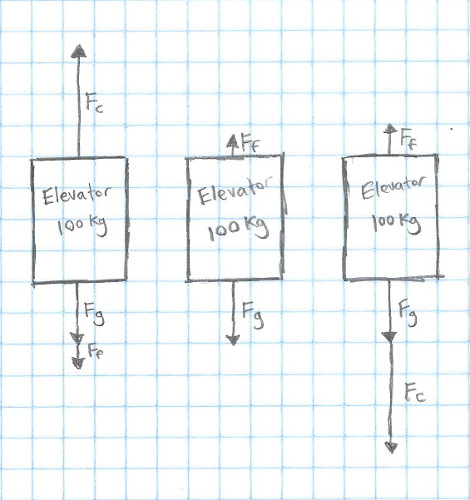 Fc
Elevator
100 Kg
Fg
Ff
Ff
Elevator
100 Kg
Fg
Ff
Elevator
100 Kg
Fg
Fc